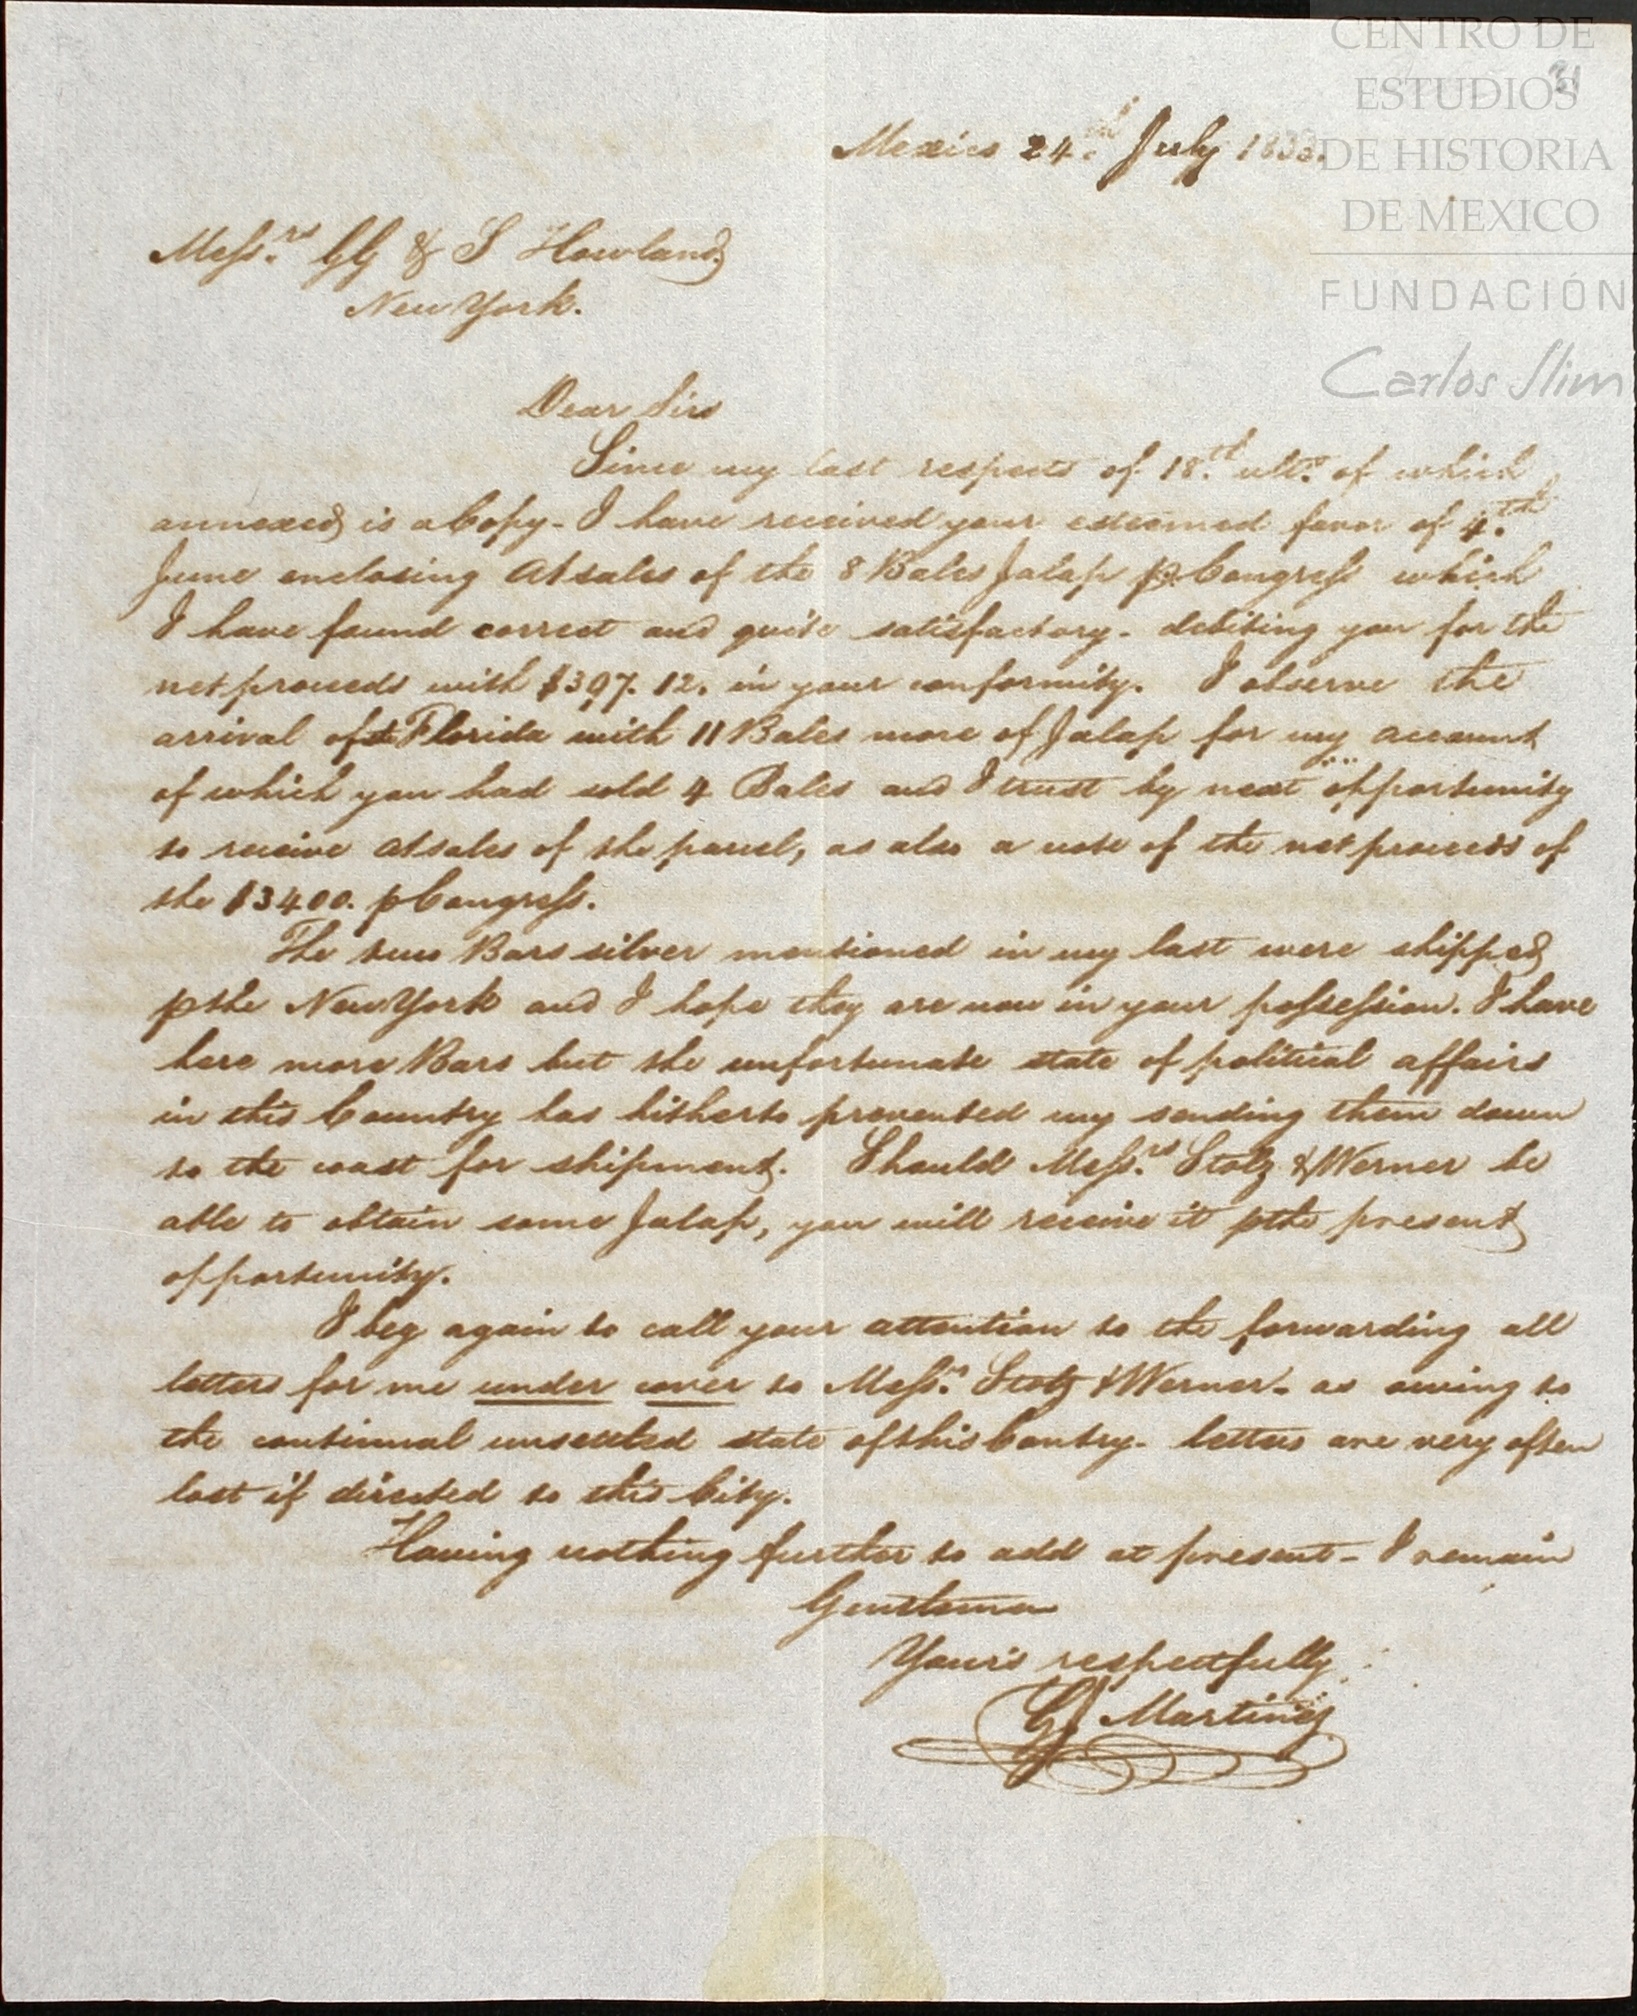 CENTRO DE
ESTUDIOS
DE HISTORIA
DE MEXICO
FUNDACIÓN
Carlos Slim
31
Mexico 24th July 1833.
Messrs GG & S Howland
New York.
Dear Sirs
Since my last respects of 18th ulto of which
annexed is a Copy - I have received your esteemed favor of 4th
June enclosing A/sales of the 8 Bales Jalap p Congress which
I have found correct and quite satisfactory - debiting you for the
net proceeds with $397.12. in your conformity. I observe the
arrival of the Florida with 11 Bales more of Jalap for my account
of which you had sold 4 Bales and I trust by next opportunity
to receive A/sales of the parcel, as also a note of the net proceeds of
the $3400. p Congress.
The two Bars silver mentioned in my last were shipped
p the New York and I hope they are now in your possession. I have
here more Bars but the unfortunate state of political affairs
in this Country has hitherto prevented my sending them down
to the coast for shipment. Should Messrs Stolz & Werner be
able to obtain some Jalap, you will receive it p the present
opportunity.
I beg again to call your attention to the forwarding all
letters for me under cover to Messrs Stolz & Werner - as owing to
the continual unsettled state of this Contry - letters are very often
lost if directed to this City.
Having nothing further to add at present - I remain
Gentlemen
Your's respectfully
Martinez